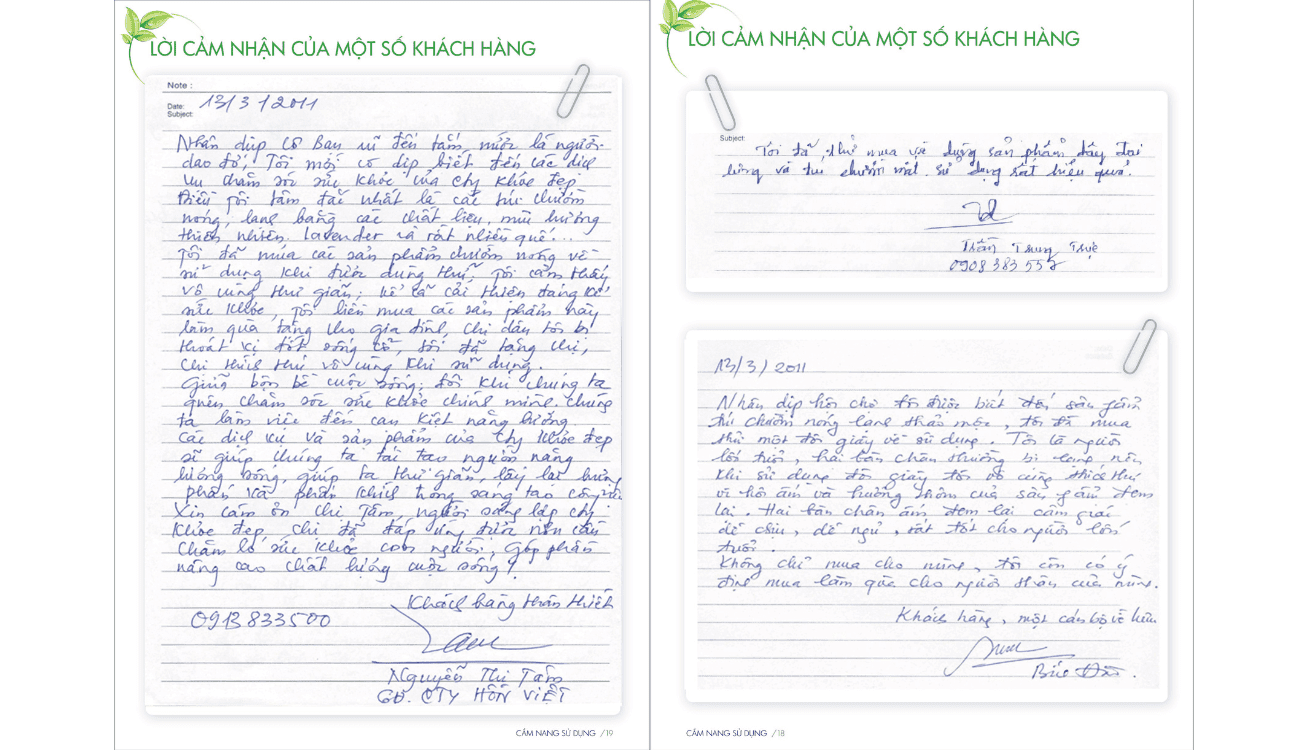 LỜI CẢM NHẬN CỦA MỘT SỐ KHÁCH HÀNG
Note :
Date: 13/3/2011
Subject:
Nhân dịp cô bạn đến tắm, mước là người
dao đỏ, Tôi mới có dịp biết đến các dịch
vụ chăm sóc sức khỏe của Cty Khỏe Đẹp
Điều tôi tâm đắc nhất là các túi chườm
nóng, lạnh bằng các chất liệu, mùi hương
thiên nhiên. lavender và rất nhiều quế...
Tôi đã mua các sản phẩm chườm nóng về
sử dụng khi được dùng thử, Tôi cảm thấy
vô cùng thư giãn; kể cả cải thiện đáng kể
sức khỏe, Tôi liền mua các sản phẩm này
làm quà tặng cho gia đình, chị dâu tôi bị
thoát vị đốt sống cổ, tôi đã tặng chị,
chị thích thú vô cùng khi sử dụng.
Giữa bộn bề cuộc sống; đôi khi chúng ta
quên chăm sóc sức khỏe chính mình. chúng
ta làm việc đến cạn kiệt năng lượng.
Các dịch vụ và sản phẩm của Cty Khỏe đẹp
sẽ giúp chúng ta tái tạo nguồn năng
lượng sống, giúp ta thư giãn, lấy lại hưng
phấn và phấn khích trong sáng tạo công việc
Xin cám ơn chị Tâm, người sáng lập cty
Khỏe đẹp, chị đã đáp ứng được nhu cầu
chăm lo sức khỏe con người, góp phần
nâng cao chất lượng cuộc sống!
Khách hàng thân thiết
0913 833500
Nguyễn Thị Tám
GĐ. CTY HỒN VIỆT
CẨM NANG SỬ DỤNG /19
LỜI CẢM NHẬN CỦA MỘT SỐ KHÁCH HÀNG
Subject:
Tôi đã thử mua về dùng sản phẩm dây đai
lưng và túi chườm mắt. sử dụng rất hiệu quả.
Trần Trung Trực
0908 383 557
13/3/2011
Nhân dịp hội chợ tôi được biết đến sản phẩm
túi chườm nóng lạnh thảo mộc, tôi đã mua
thử một đôi giầy về sử dụng. Tôi là người
lớn tuổi, hai bàn chân thường bị lạnh nên
khi sử dụng đôi giầy tôi vô cùng thích thú
vì hơi ấm và hương thơm của sản phẩm đem
lại. Hai bàn chân ấm đem lại cảm giác
dễ chịu, dễ ngủ, rất tốt cho người lớn
tuổi.
Không chỉ mua cho mình, tôi còn có ý
định mua làm quà cho người thân của mình.
Khách hàng, một cán bộ về hưu
CẨM NANG SỬ DỤNG /18